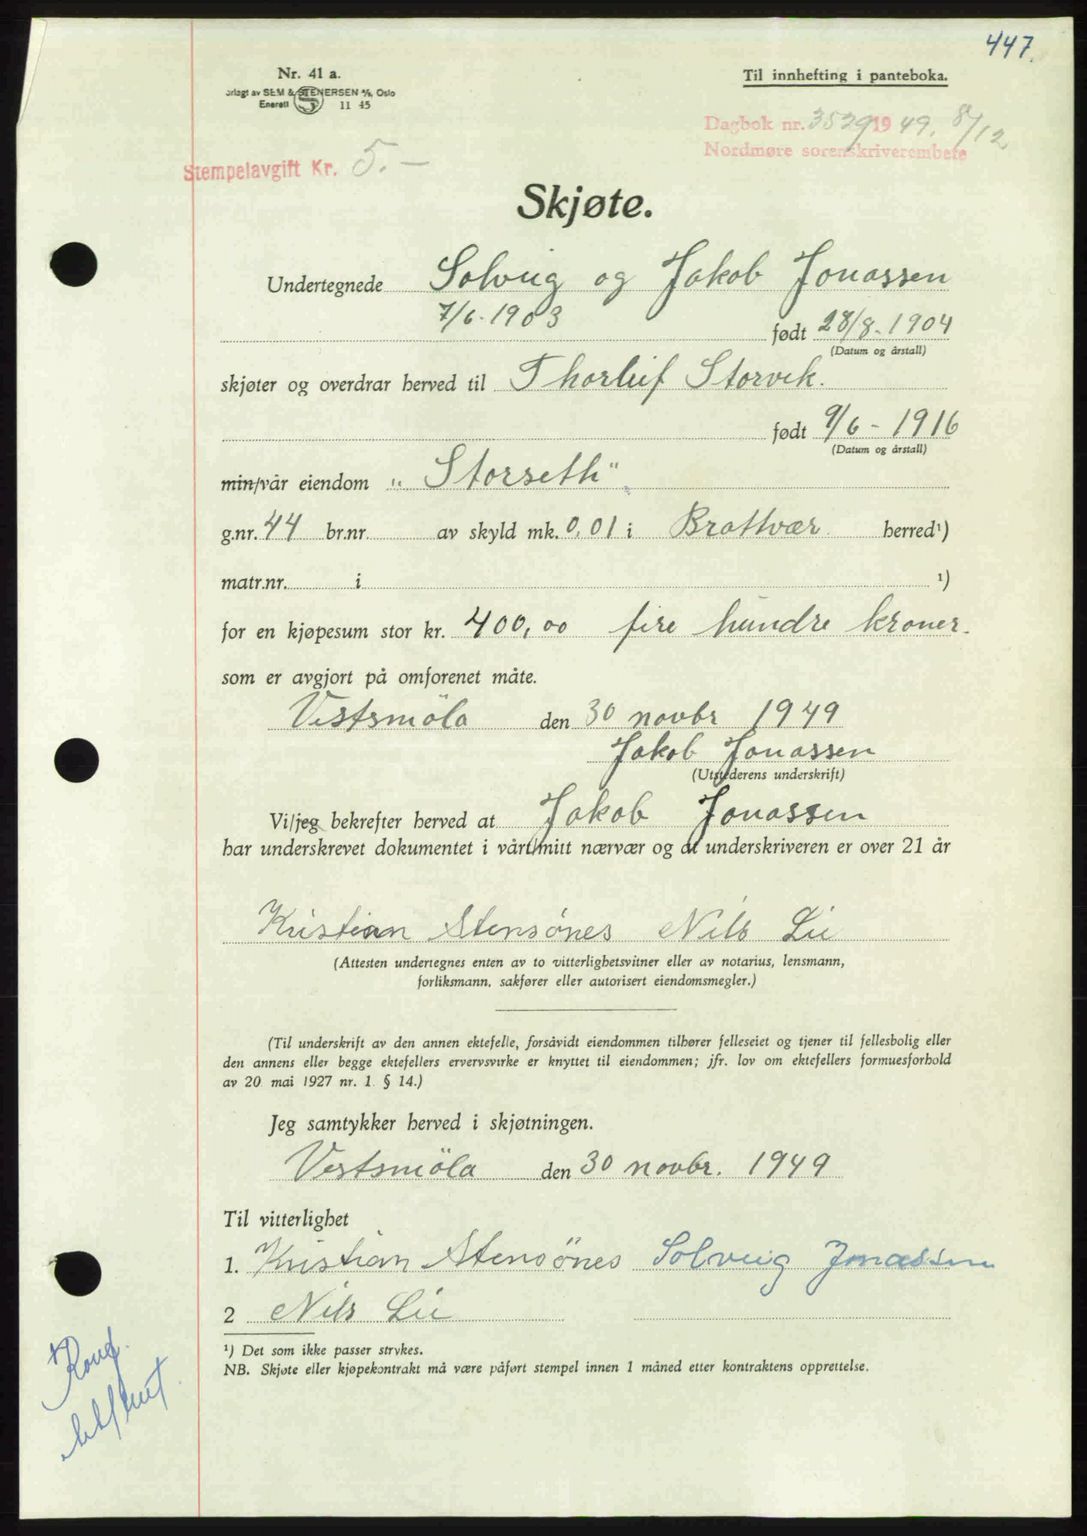 447.
Nr. 41 a.
orlagt av SEM & STENERSEN A/S, Oslo
Enerett S 11 45
Til innhefting i panteboka.
Dagbok nr. 3529 1949. 8/12
Nordmøre sorenskriverembete
Stempelavgift Kr. 5.—
Skjøte.
Undertegnede Solveig og Jakob Jonassen
7/6-1903
født 28/8-1904
(Datum og årstall)
skjøter og overdrar herved til Thorleif Storvik.
født 9/6-1916
(Datum og årstall)
min/vår eiendom „Storseth"
g.nr. 44 br.nr. av skyld mk. 0,01 i Brattvær herred¹)
matr.nr. i ¹)
for en kjøpesum stor kr. 400,00 fire hundre kroner.
som er avgjort på omforenet måte.
Vestsmöla den 30 novbr 1949
Jakob Jonassen
(Utstederens underskrift)
Vi/jeg bekrefter herved at Jakob Jonassen
har underskrevet dokumentet i vårt/mitt nærvær og at underskriveren er over 21 år
Kristian Stensönes Nils Lie
(Attesten undertegnes enten av to vitterlighetsvitner eller av notarius, lensmann,
forliksmann, sakfører eller autorisert eiendomsmegler.)
(Til underskrift av den annen ektefelle, forsåvidt eiendommen tilhører felleseiet og tjener til fellesbolig eller
den annens eller begge ektefellers ervervsvirke er knyttet til eiendommen; jfr. lov om ektefellers formuesforhold
av 20 mai 1927 nr. 1 § 14.)
Jeg samtykker herved i skjøtningen.
Vestsmöla den 30 novbr. 1949
Til vitterlighet
1. Kristian Stensönes Solveig Jonassen
2 Nils Lie
¹) Det som ikke passer strykes.
NB. Skjøte eller kjøpekontrakt må være påført stempel innen 1 måned etter kontraktens opprettelse.